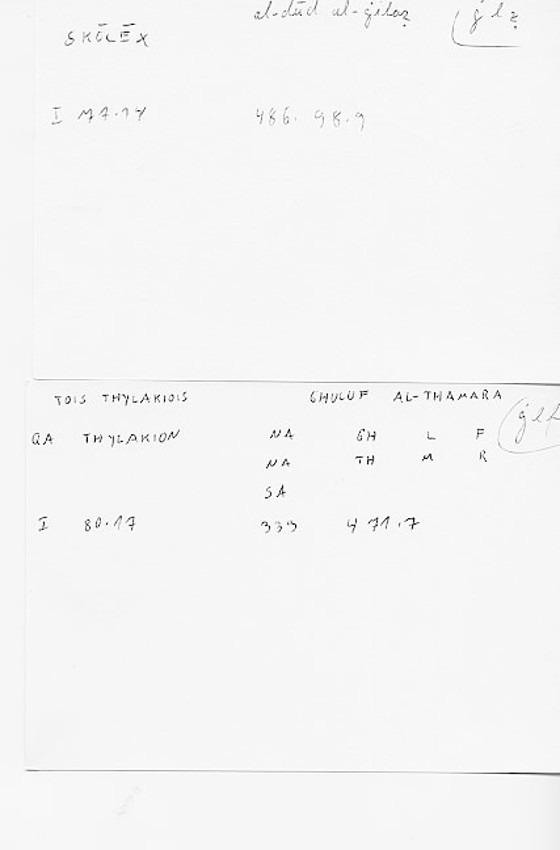 al-dūd al-ġilaẓ ġlẓ
SKŌLĒX
I 117.14 486. 98.9
TOIS THYLAKIOIS GHULUF AL-THAMARA ġlf
QA THYLAKION NA GH L F
NA TH M R
SA
I 80.17 339 471.7